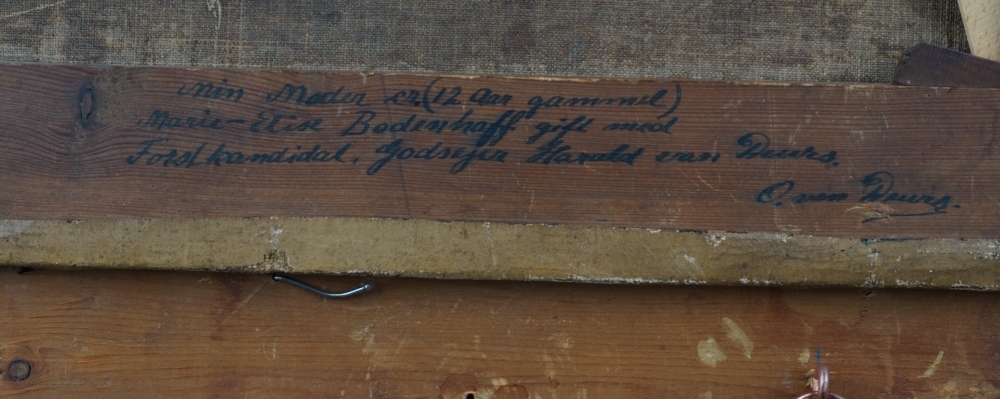 Min Moder cr. (12 Aar gammel)
Marie-Elise Bodenhoff. gift med
Forstkandidat. Godsejer Harald van Deurs.
O. van Deurs.